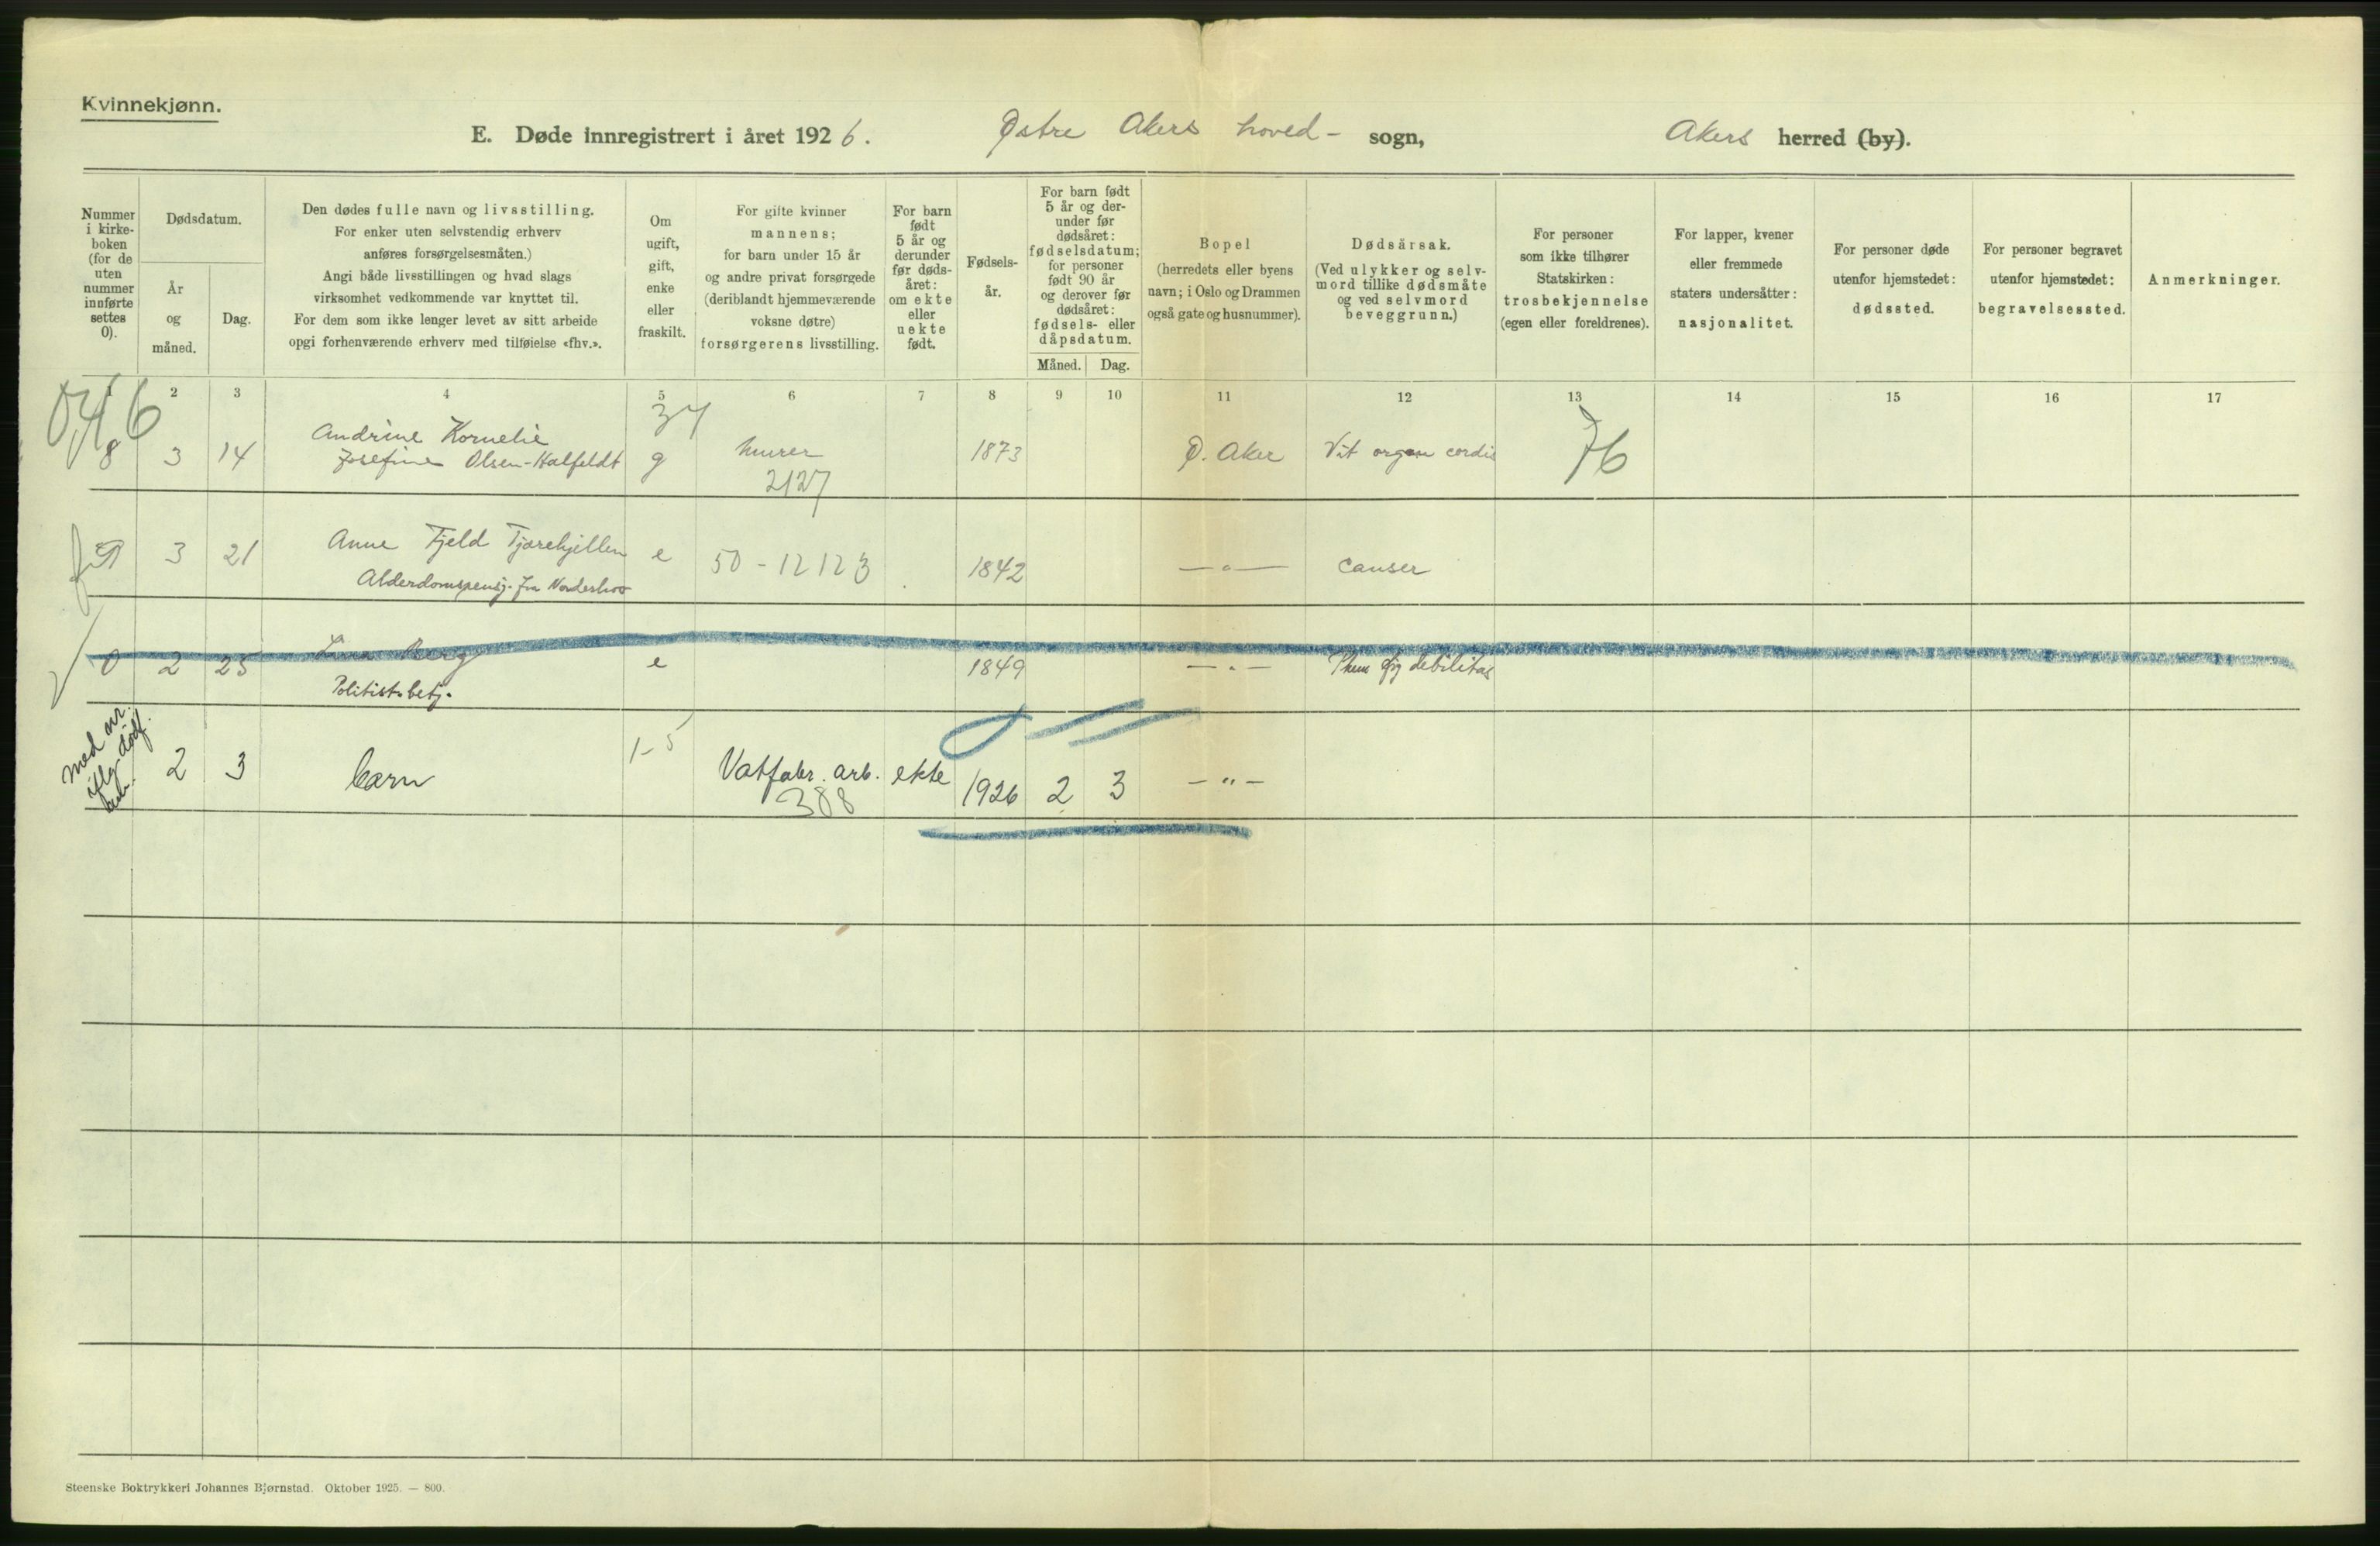 Kvinnekjønn.
E. Døde innregistrert i året 1926. Østre Akers hoved- sogn, Akers herred (by).
Nummer i kirke- boken (for de uten nummer innførte settes 0).
Dødsdatum.
År og måned.
Dag.
Den dødes fulle navn og livsstilling.
For enker uten selvstendig erhverv
anføres forsørgelsesmåten.)
Angi både livsstillingen og hvad slags
virksomhet vedkommende var knyttet til.
For dem som ikke lenger levet av sitt arbeide
opgi forhenværende erhverv med tilføielse «fhv.».
Om ugift, gift, enke eller fraskilt.
For gifte kvinner
mannens;
for barn under 15 år
og andre privat forsørgede
(deriblandt hjemmeværende
voksne døtre)
forsørgerens livsstilling.
For barn født 5 år og derunder før døds- året: om ekte eller uekte født.
Fødsels- år.
For barn født
5 år og der-
under før
dødsåret:
fødselsdatum;
for personer
født 90 år
og derover før
dødsåret:
fødsels- eller
dåpsdatum.
Måned. Dag.
Bopel
(herredets eller byens
navn; i Oslo og Drammen
også gate og husnummer).
Dødsårsak.
(Ved ulykker og selv-
mord tillike dødsmåte
og ved selvmord
beveggrunn.)
For personer
som ikke tilhører
Statskirken:
trosbekjennelse
(egen eller foreldrenes).
For lapper, kvener
eller fremmede
staters undersåtter:
nasjonalitet.
For personer døde
utenfor hjemstedet:
dødssted.
For personer begravet
utenfor hjemstedet:
begravelsessted.
Anmerkninger.
1 2 3 4 5 6 7 8 9 10 11 12 13 14 15 16 17
37
Andrine Kornelie
8 3 14 Josefine Olsen-Halfeldt g murer 1873 Ø. Aker Vit organ cordis 76
2127
9 3 21 Anne Fjeld Tjærehjellen e 50-12123 1842 —„— Canser
Alderdomspensj. fra Norderhov
0 2 25 Berg e 1849 —„— debilitas
1-5
Med nr. iflg. dødf.
2 3 barn Vatfabr. arb. ekte 1926 2 3 —„—
388
Steenske Boktrykkeri Johannes Bjørnstad. Oktober 1925. — 800.